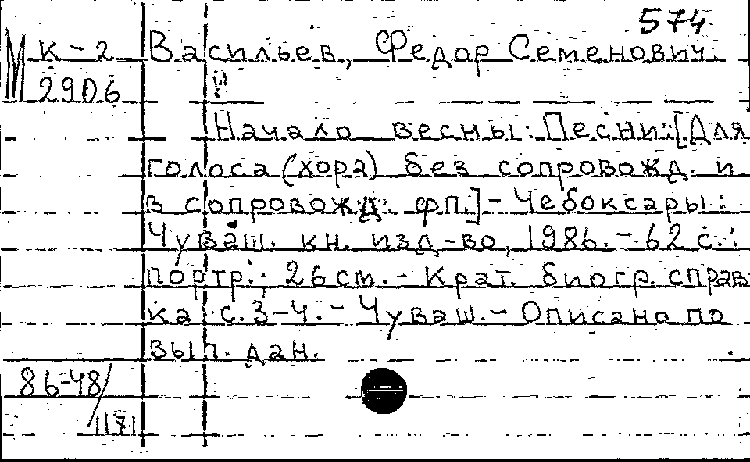 574
М К-2 Васильев, Федор Семенович.
2906
Начало весны: Песни: [Для
голоса (хора) без сопровожд. и
в сопровожд. фп.] - Чебоксары:
Чуваш. кн. изд-во, 1986. - 62 с.:
портр.; 26 см. - Крат. биогр. справ
ка с. 3-4. - Чуваш. - Описано по
вып. дан.
86-48/
1171